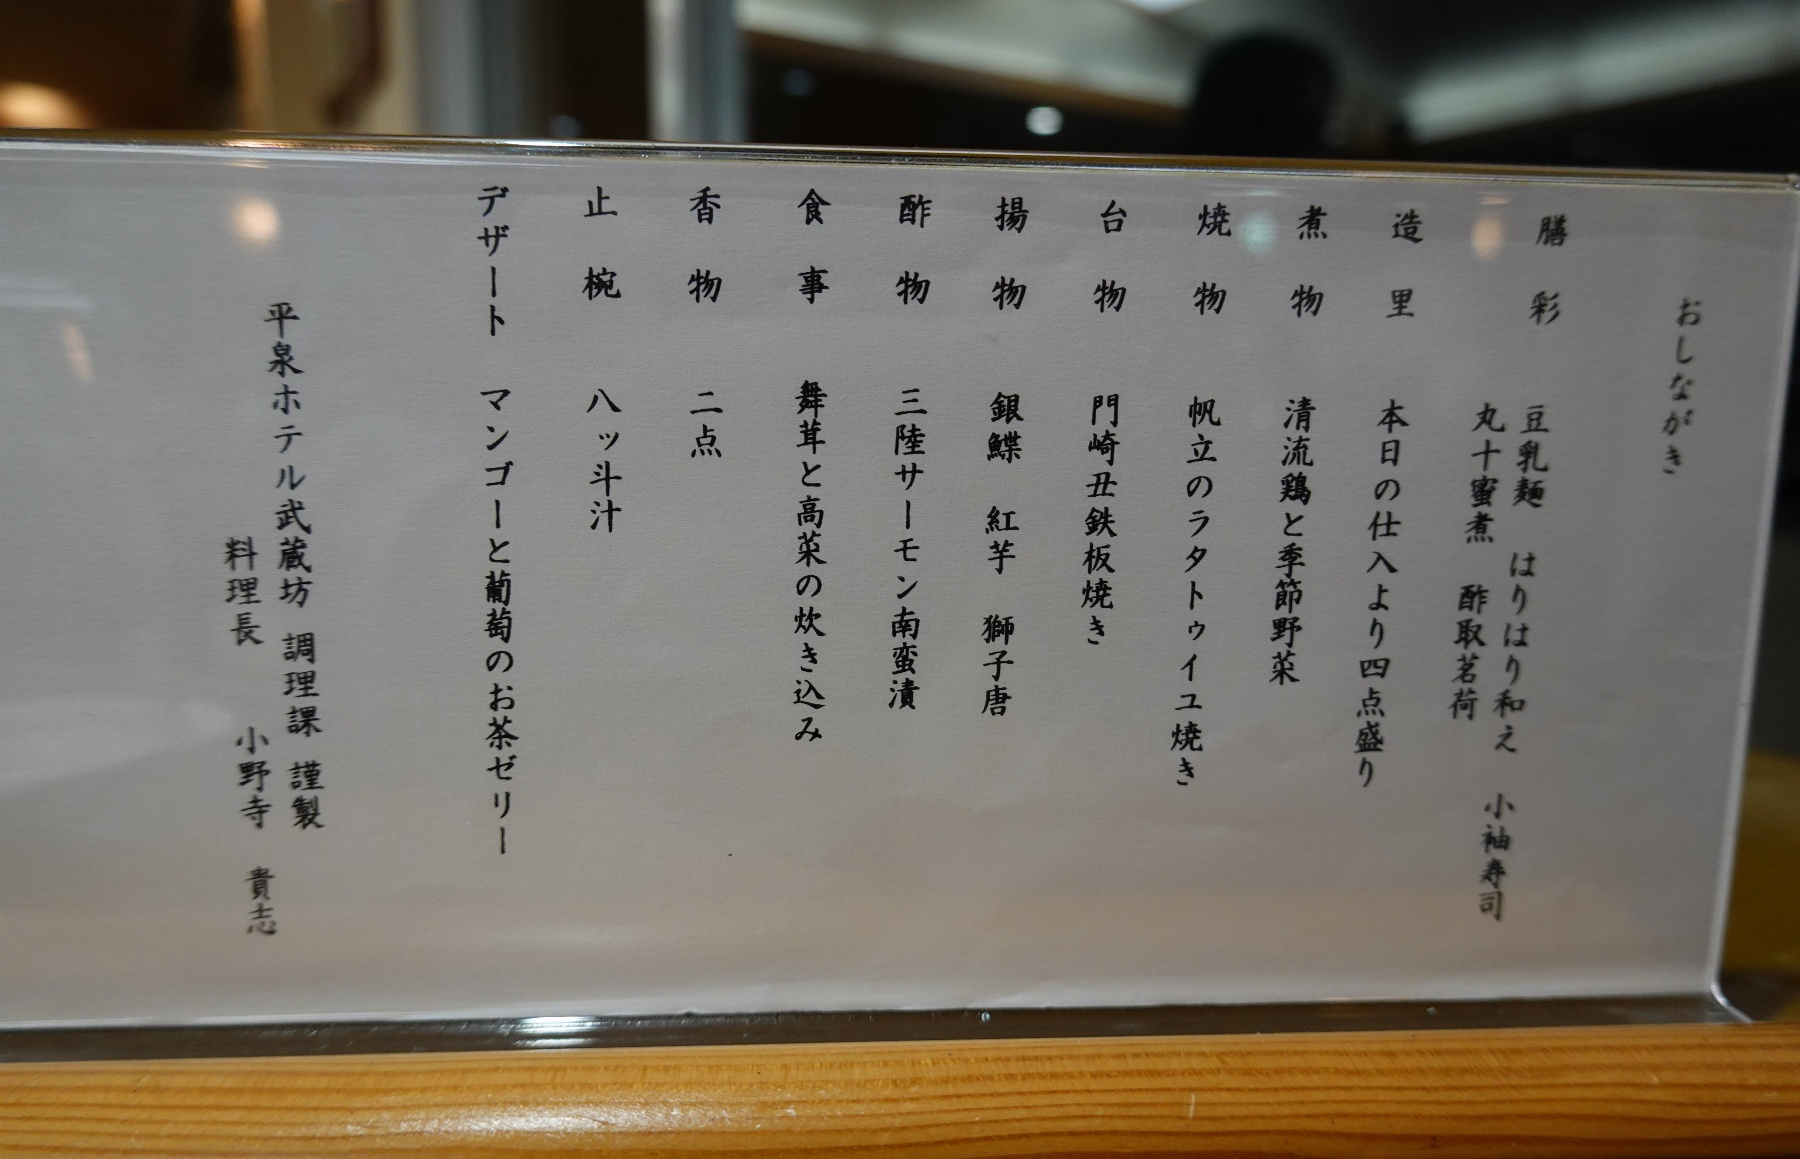 おしながき
膳彩　豆乳麺　はりはり和え　小袖寿司
丸十蜜煮　酢取茗荷
造里　本日の仕入より四点盛り
煮物　清流鶏と季節野菜
焼物　帆立のラタトゥイユ焼き
台物　門崎丑鉄板焼き
揚物　銀鰈　紅芋　獅子唐
酢物　三陸サーモン南蛮漬
食事　舞茸と高菜の炊き込み
香物　二点
止椀　八ッ斗汁
デザート　マンゴーと葡萄のお茶ゼリー
平泉ホテル武蔵坊　調理課　謹製
料理長　小野寺　貴志